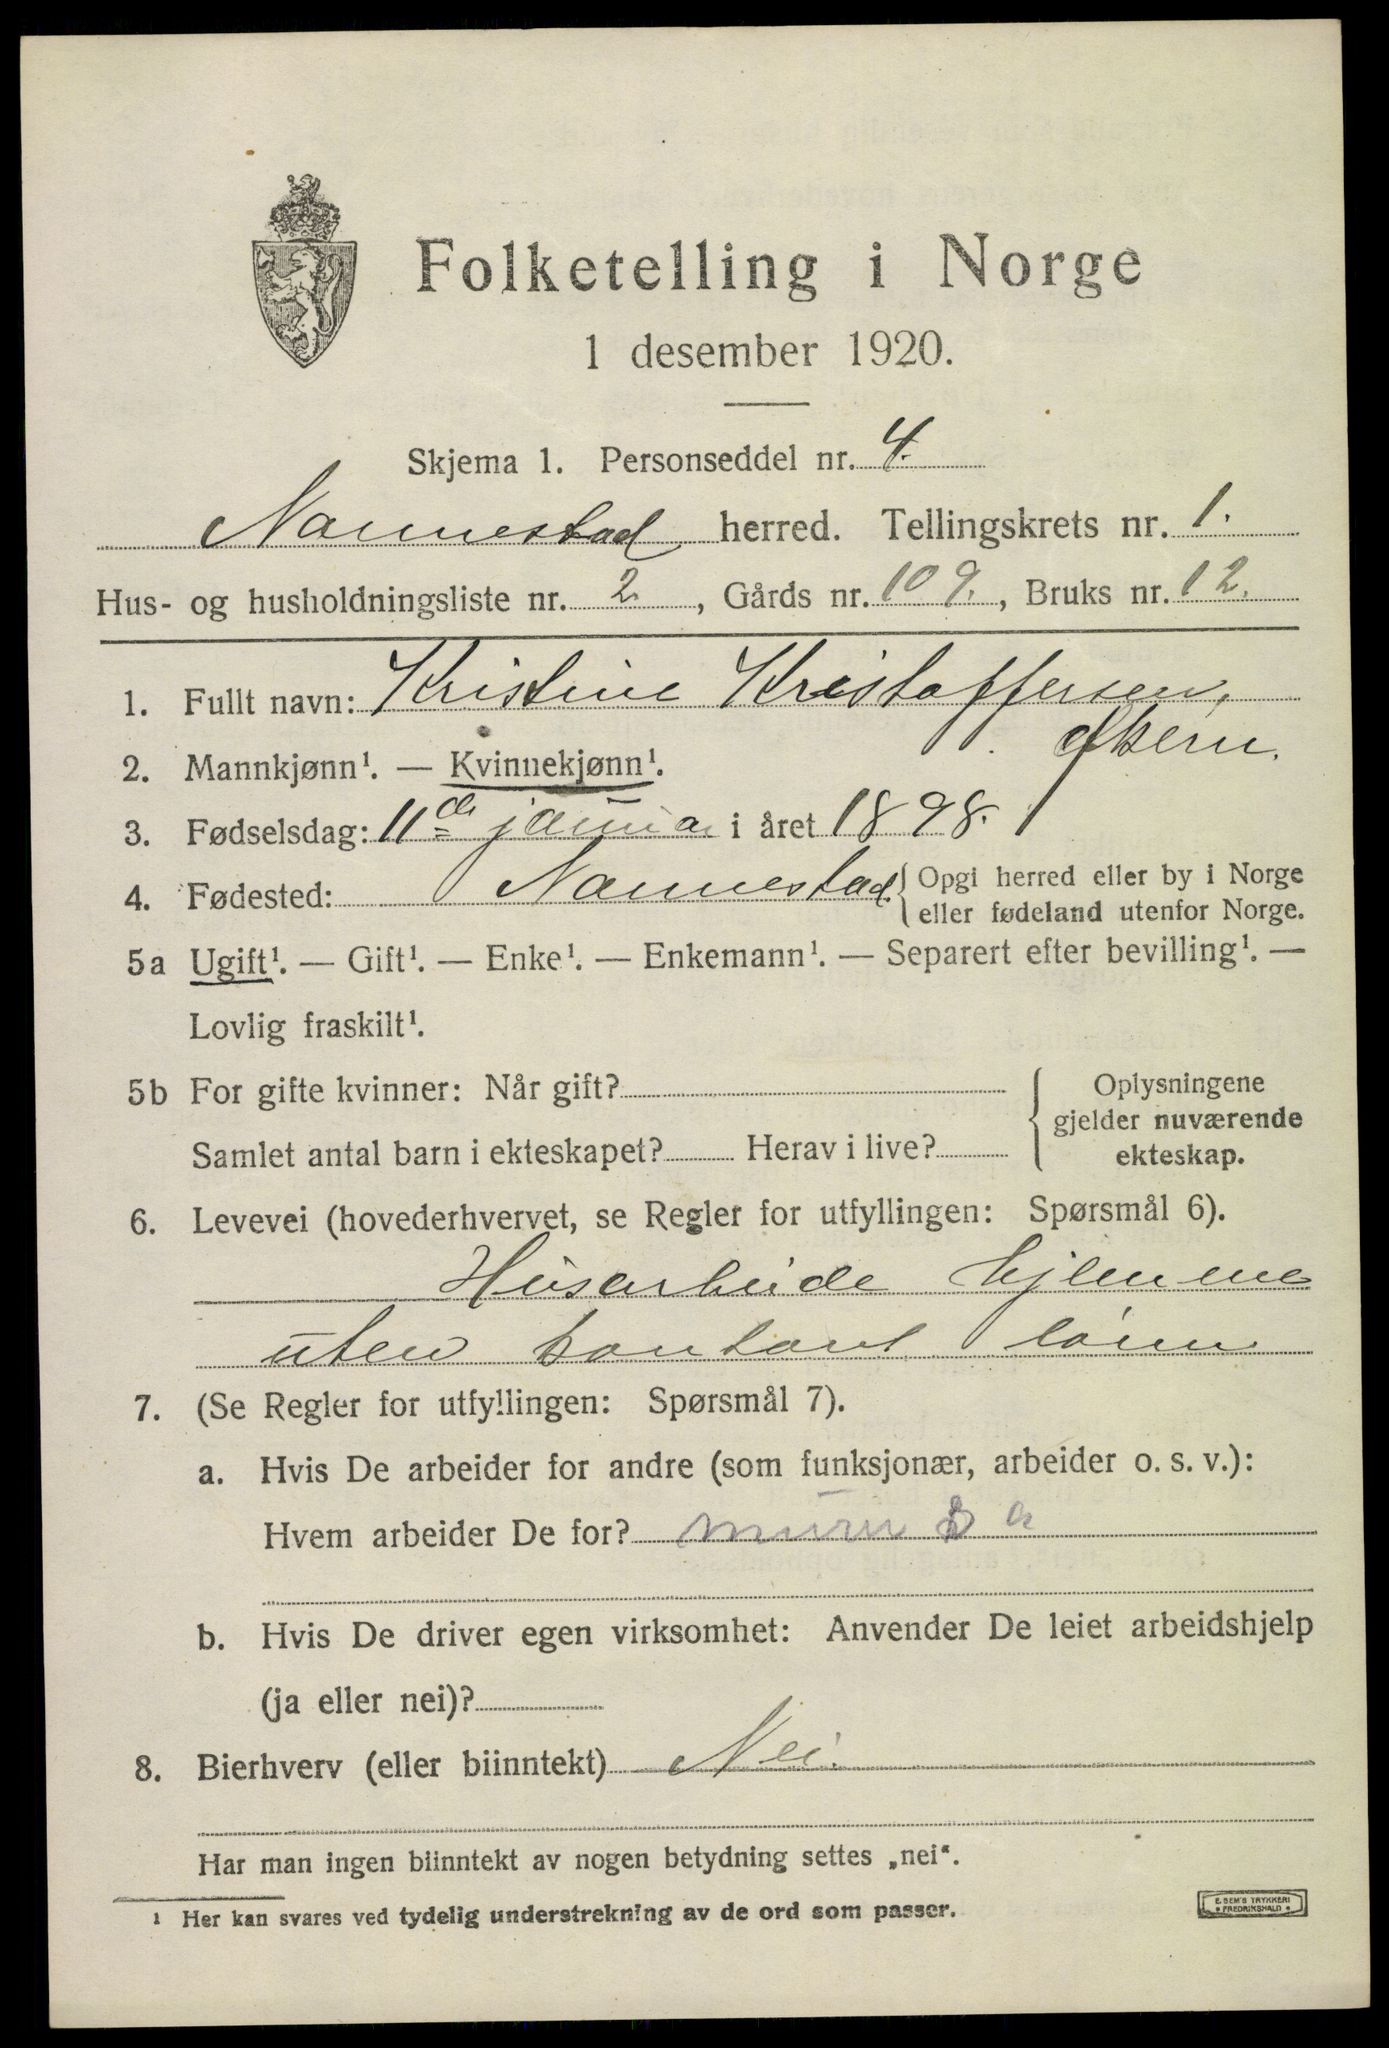 Folketelling i Norge
1 desember 1920.
Skjema 1. Personseddel nr. 4.
Nannestad herred. Tellingskrets nr. 1.
Hus- og husholdningsliste nr. 2, Gårds nr. 109., Bruks nr. 12.
1. Fullt navn: Kristine Kristoffersen,
2. Mannkjønn¹. — Kvinnekjønn¹.
3. Fødselsdag: 11de januar i året 1898.
4. Fødested: Nannestad. {Opgi herred eller by i Norge
eller fødeland utenfor Norge.
5a Ugift¹. — Gift¹. — Enke¹. — Enkemann¹. — Separert efter bevilling¹. —
Lovlig fraskilt¹.
5b For gifte kvinner: Når gift?
Samlet antal barn i ekteskapet? Herav i live?
Oplysningene
gjelder nuværende
ekteskap.
6. Levevei (hovederhvervet, se Regler for utfyllingen: Spørsmål 6).
Husarbeide hjemme
uten kontant lønn
7. (Se Regler for utfyllingen: Spørsmål 7).
a. Hvis De arbeider for andre (som funksjonær, arbeider o. s. v.):
Hvem arbeider De for?
b. Hvis De driver egen virksomhet: Anvender De leiet arbeidshjelp
(ja eller nei)?
8. Bierhverv (eller biinntekt) Nei.
Har man ingen biinntekt av nogen betydning settes „nei“.
¹ Her kan svares ved tydelig understrekning av de ord som passer.
E. SEM'S TRYKKERI
FREDRIKSHALD